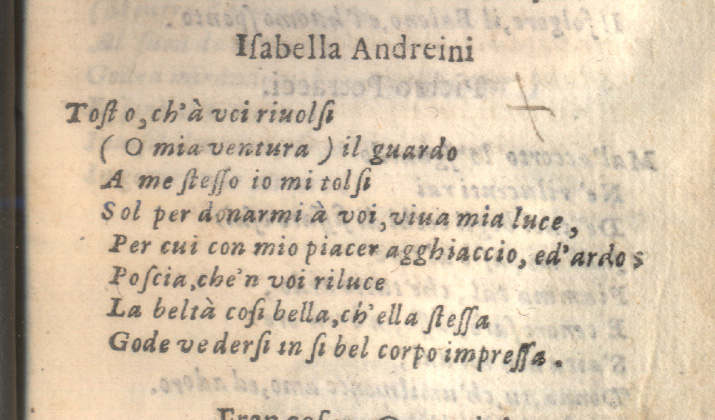 Iſabella Andreini
Toſto, ch'à voi riuolſi
( O mia ventura ) il guardo
A me ſteſſo io mi tolſi
Sol per donarmi à voi, viua mia luce,
Per cui con mio piacer agghiaccio, ed'ardo s
Poſcia, che'n voi riluce
La beltà coſi bella, ch'ella ſteſſa
Gode vederſi in ſi bel corpo impreſſa.